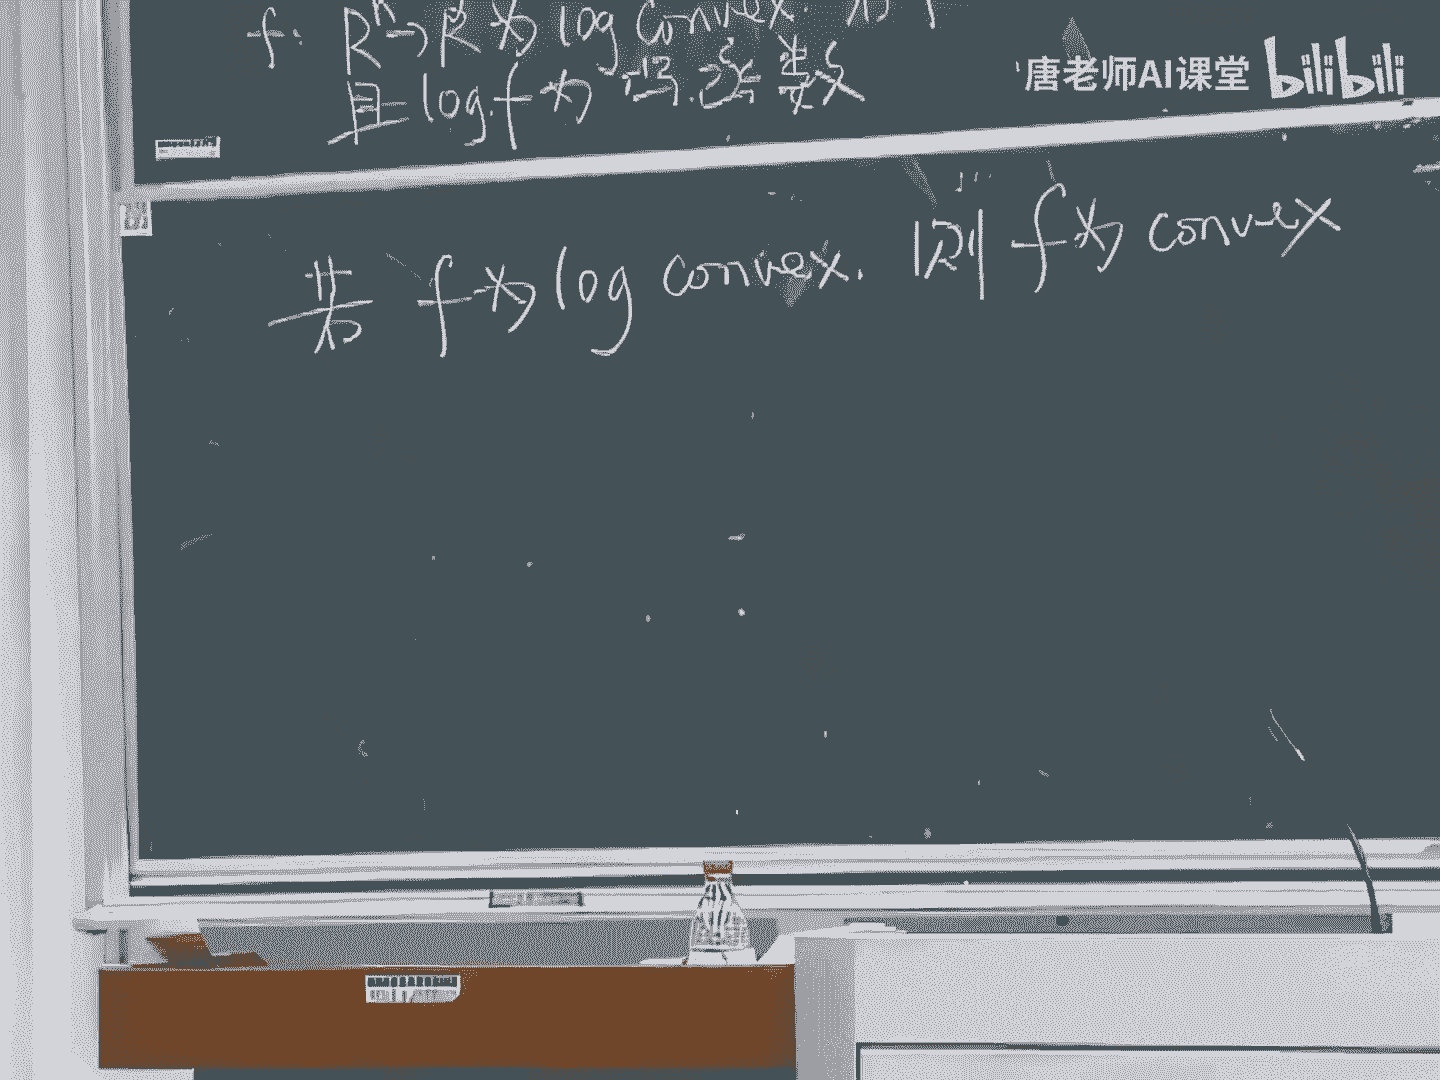 f: Rⁿ→R 为 log convex. 若 f
且 log f 为 凸函数
唐老师AI课堂 bilibili
若 f 为 log convex. 则 f 为 convex